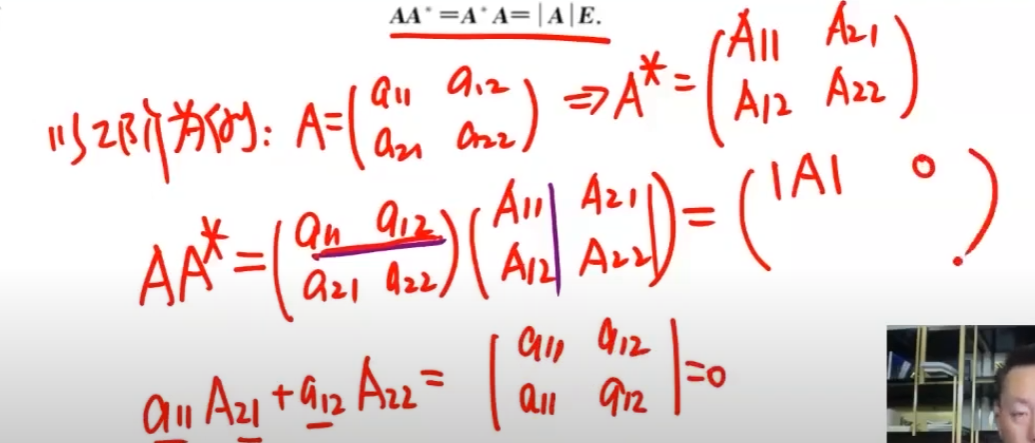 AA* = A*A = |A|E.
以2阶为例: A = (a11 a12 a21 a22) ⇒ A* = (A11 A21 A12 A22)
AA* = (a11 a12 a21 a22)(A11 A21 A12 A22) = (|A| 0 .)
a11 A21 + a12 A22 = |a11 a12 a11 a12| = 0